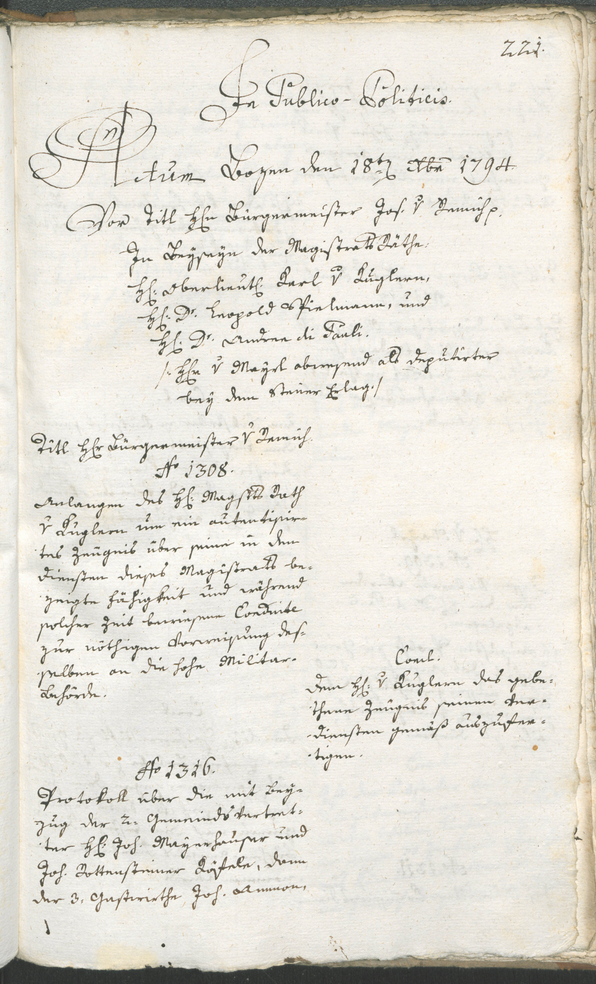 221.
In Publico-Politicis.
Actum Bozen den 18t Xbr 1794
Vor Titl Hn Bürgermeister Jos. v Remich p.
In Beyseyn der Magistrats Räthe.
H: Oberlieut: Karl v Kuglern,
H: Dr. Leopold Spielmann, und
H: Dr. Andrea di Pauli.
/: Hn v Mayrl abwesend als deputirter
bey dem Steuer Erlag :/
Titl Hr Bürgermeister v Remich.
No 1308.
Anlangen des H: Magstts Rath
v Kuglern um ein autentisir-
tes Zeugnis über seine in den
diensten dieses Magistrats be-
zeigte Fähigkeit und während
solcher Zeit bewiesene Conduite
zur nöthigen Vorweisung des-
selben an die hohe Militar-
behörde.
Concl.
dem H: v Kuglern das gebe-
thene Zeugnis seinen Ver-
diensten gemäß auszufer-
tigen.
No 1316.
Protokoll über die mit Bey-
zug der 2. Gemeinds Vertret-
ter H: Joh. Mayrhauser und
Joh. Rottensteiner Käsele, dann
der 3. Gastwirthe Joh. Ammon,